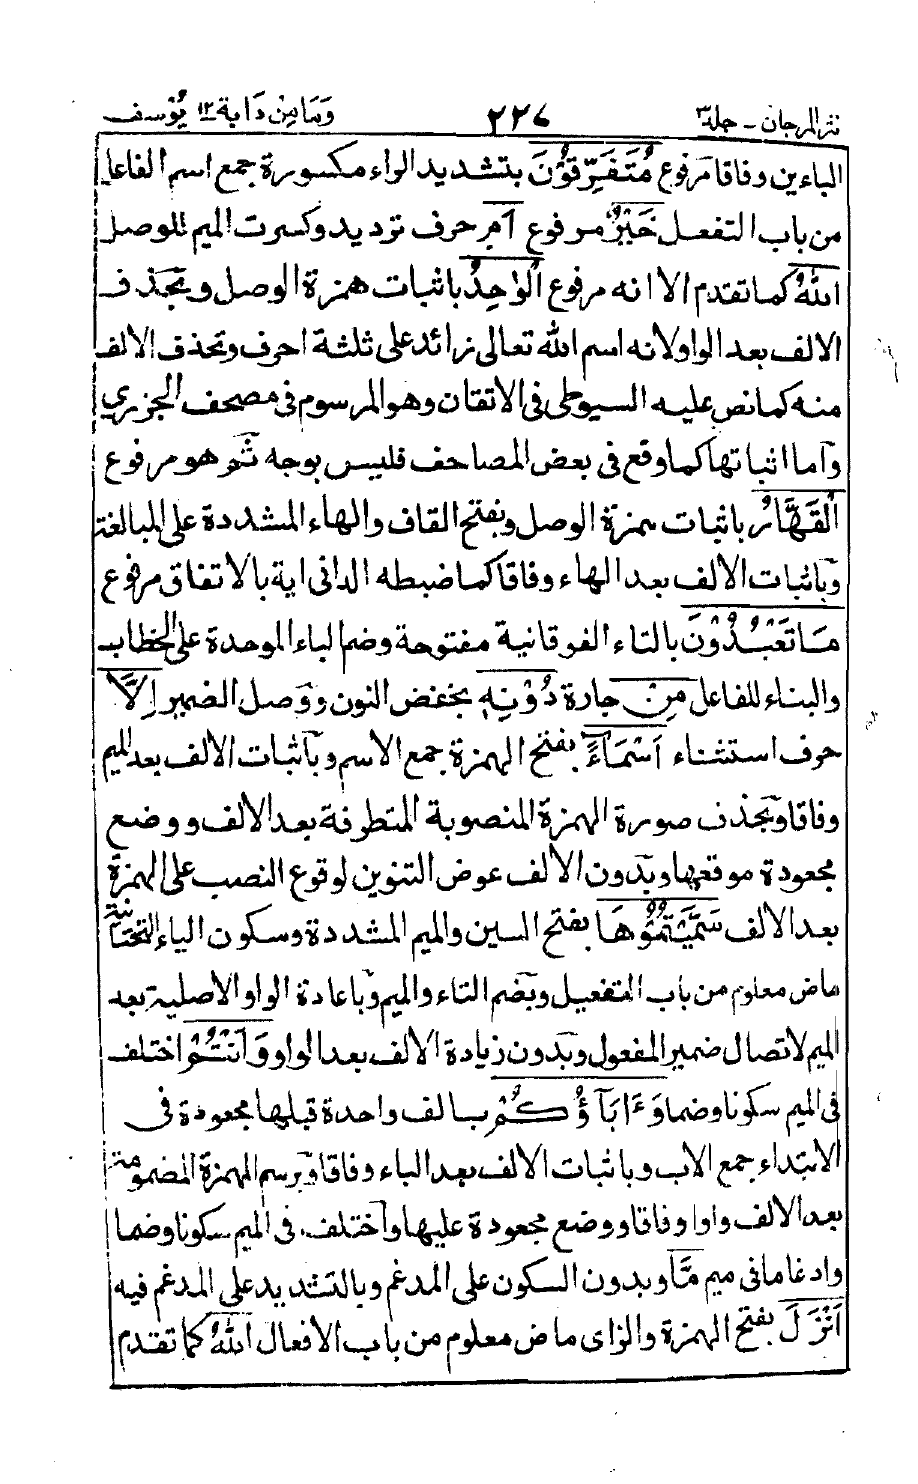 نثر المرجان - جلد ٣ ٢٢٧ وما من دابة ١٢ يوسف
الباءين وفاقا مرفوع مُتَفَرِّقُوْنَ بتشديد الراء مكسورة جمع اسم الفاعل
من باب التفعل خَيْرٌ مرفوع اَمِ حرف ترديد وكسرت الميم للوصل
اللهُ كما تقدم الا انه مرفوع الْوٰحِدُ باثبات همزة الوصل وبحذف
الالف بعد الواو لانه اسم الله تعالى زائد على ثلثة احرف وتحذف الالف
منه كما نص عليه السيوطى فى الاتقان وهو المرسوم فى مصحف الجزري
وآما اثباتها كما وقع فى بعض المصاحف فليس بوجه ثم هو مرفوع
الْقَهَّارُ باثبات همزة الوصل وبفتح القاف والهاء المشددة على المبالغة
وباثبات الالف بعد الهاء وفاقا كما ضبطه الدانى اية بالاتفاق مرفوع
مَا تَعْبُدُوْنَ بالتاء الفوقانية مفتوحة وضم الباء الموحدة على الخطاب
والبناء للفاعل مِنْ جارة دُوْنِهٖ بخفض النون ووصل الضمير اِلَّا
حرف استثناء اَسْمَآءً بفتح الهمزة جمع الاسم وبآثبات الالف بعد الميم
وفاقا وبحذف صورة الهمزة المنصوبة المتطرفة بعد الالف ووضع
مجعودة موقعها وبدون الالف عوض التنوين لوقوع النصب على الهمزة
بعد الالف سَمَّيْتُمُوْهَا بفتح السين والميم المشددة وسكون الياء التحتانية
ماض معلوم من باب التفعيل وبضم التاء والميم وباعادة الواو الاصلية بعد
الميم لاتصال ضمير المفعول وبدون زيادة الالف بعد الواو وَاَنْتُمْ اختلف
فى الميم سكونا وضما وَءَابَآؤُكُمْ بالف واحدة قبلها مجعودة فى
الابتداء جمع الاب وباثبات الالف بعد الباء وفاقا وبرسم الهمزة المضمومة
بعد الالف واوا وفاقا ووضع مجعودة عليها وآختلف فى الميم سكونا وضما
وادغاما فى ميم مَّآ وبدون السكون على المدغم وبالتشديد على المدغم فيه
اَنْزَلَ بفتح الهمزة والزاى ماض معلوم من باب الافعال اللهُ كما تقدم